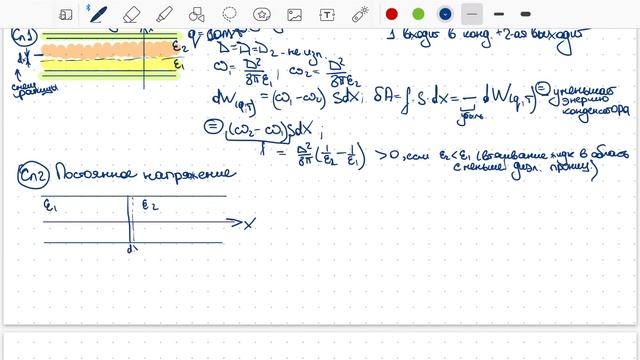 Сл1
q = const
1 входит в конд. + 2-ая выходит
ε₂
ε₁
D = D₁ = D₂ - не изп.
ω₁ = D²/8πε₁ ; ω₂ = D²/8πε₂
dx
смещ границы
dW(q,T) = (ω₁-ω₂) Sdx ; δA = f·S·dx = - dW(q,T) = уменьшая энергию конденсатора
убыль
= (ω₂-ω₁)Sdx ;
f = D²/8π (1/ε₂ - 1/ε₁) > 0, если ε₂<ε₁ (втягивание жидк в область с меньше диэл. прониц)
Сл2 Постоянное напряжение
ε₁ ε₂
x
dx